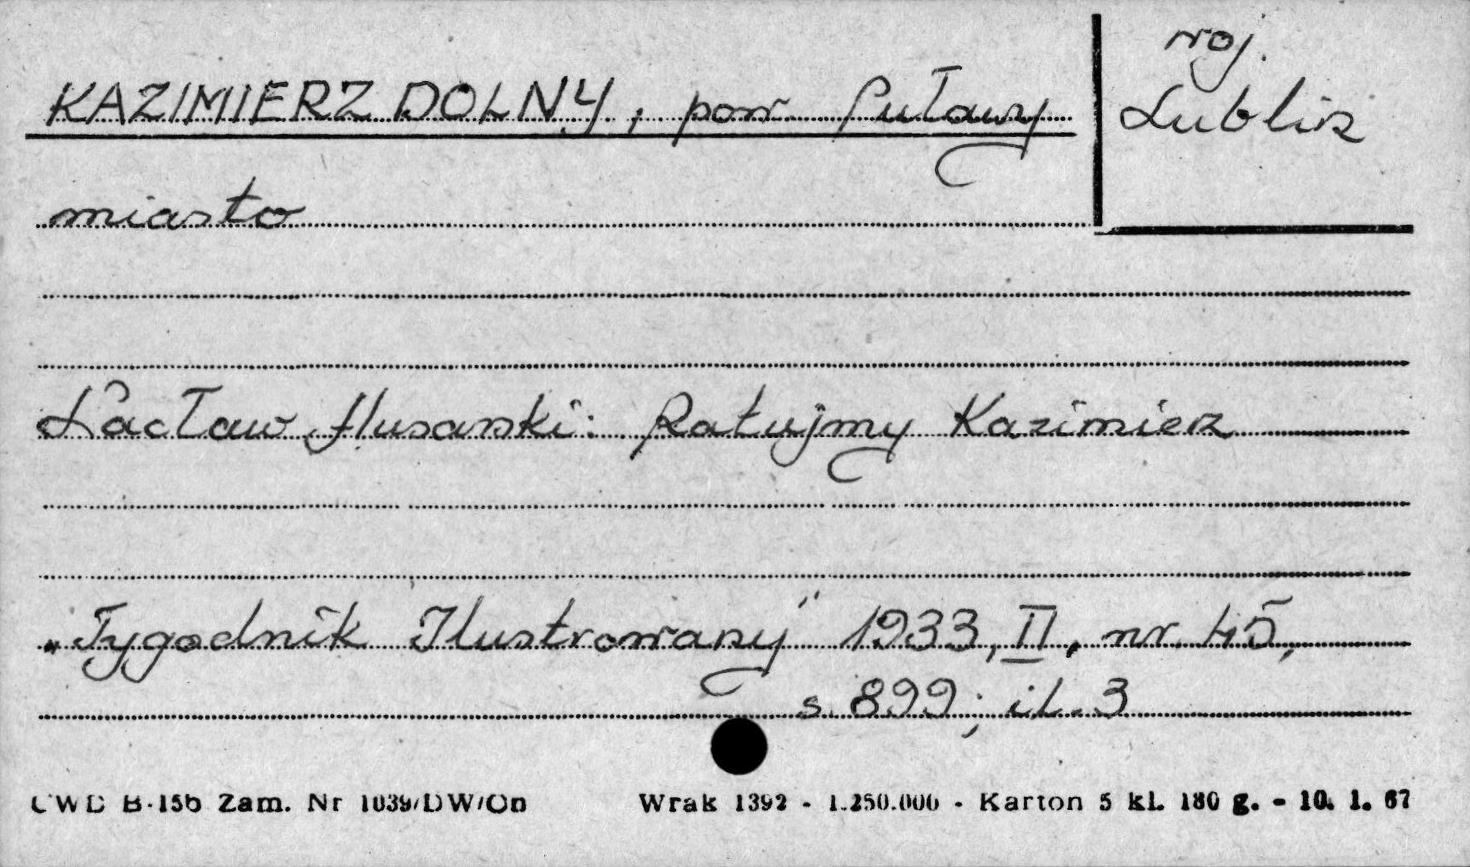 woj.
KAZIMIERZ DOLNY, pow. Puławy
Lublin
miasto
Wacław Husarski: Ratujmy Kazimierz
„Tygodnik Ilustrowany" 1933, II, nr. 45,
s. 899; il. 3
CWD B-15b Zam. Nr 1039/DW/On Wrak 1392 - 1.250.000 - Karton 5 kl. 180 g. - 10. 1. 67